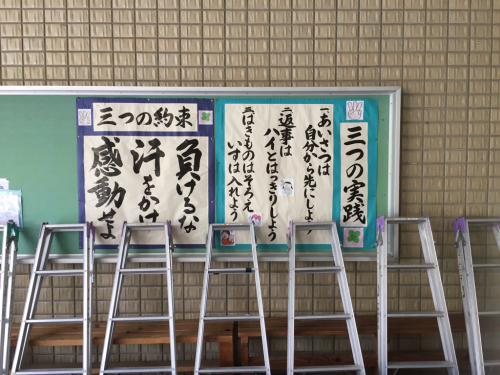 三つの実践
一、あいさつは
自分から先にしよう
二、返事は
ハイとはっきりしよう
三、はきものはそろえ
いすは入れよう
三つの約束
負けるな
汗をかけ
感動せよ